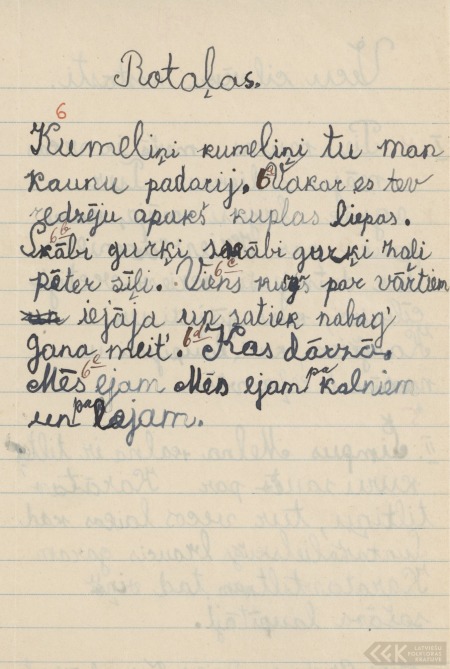 Rotaļas.
6
Kumeliņi kumeliņi tu man
kaunu padarij. 6a Vakar es tev
redzēju apakš kuplas liepas.
6b Skābi gurķi skābi gurķi zali
pēter sīļi. 6c Viens kungs par vārtiem
iejāja un satiek nabag'
gana meit'. 6d Kas dārzā.
6e Mēs ejam Mēs ejam pa kalniem
un pa lejam.
LATVIEŠU
FOLKLORAS
KRĀTUVE